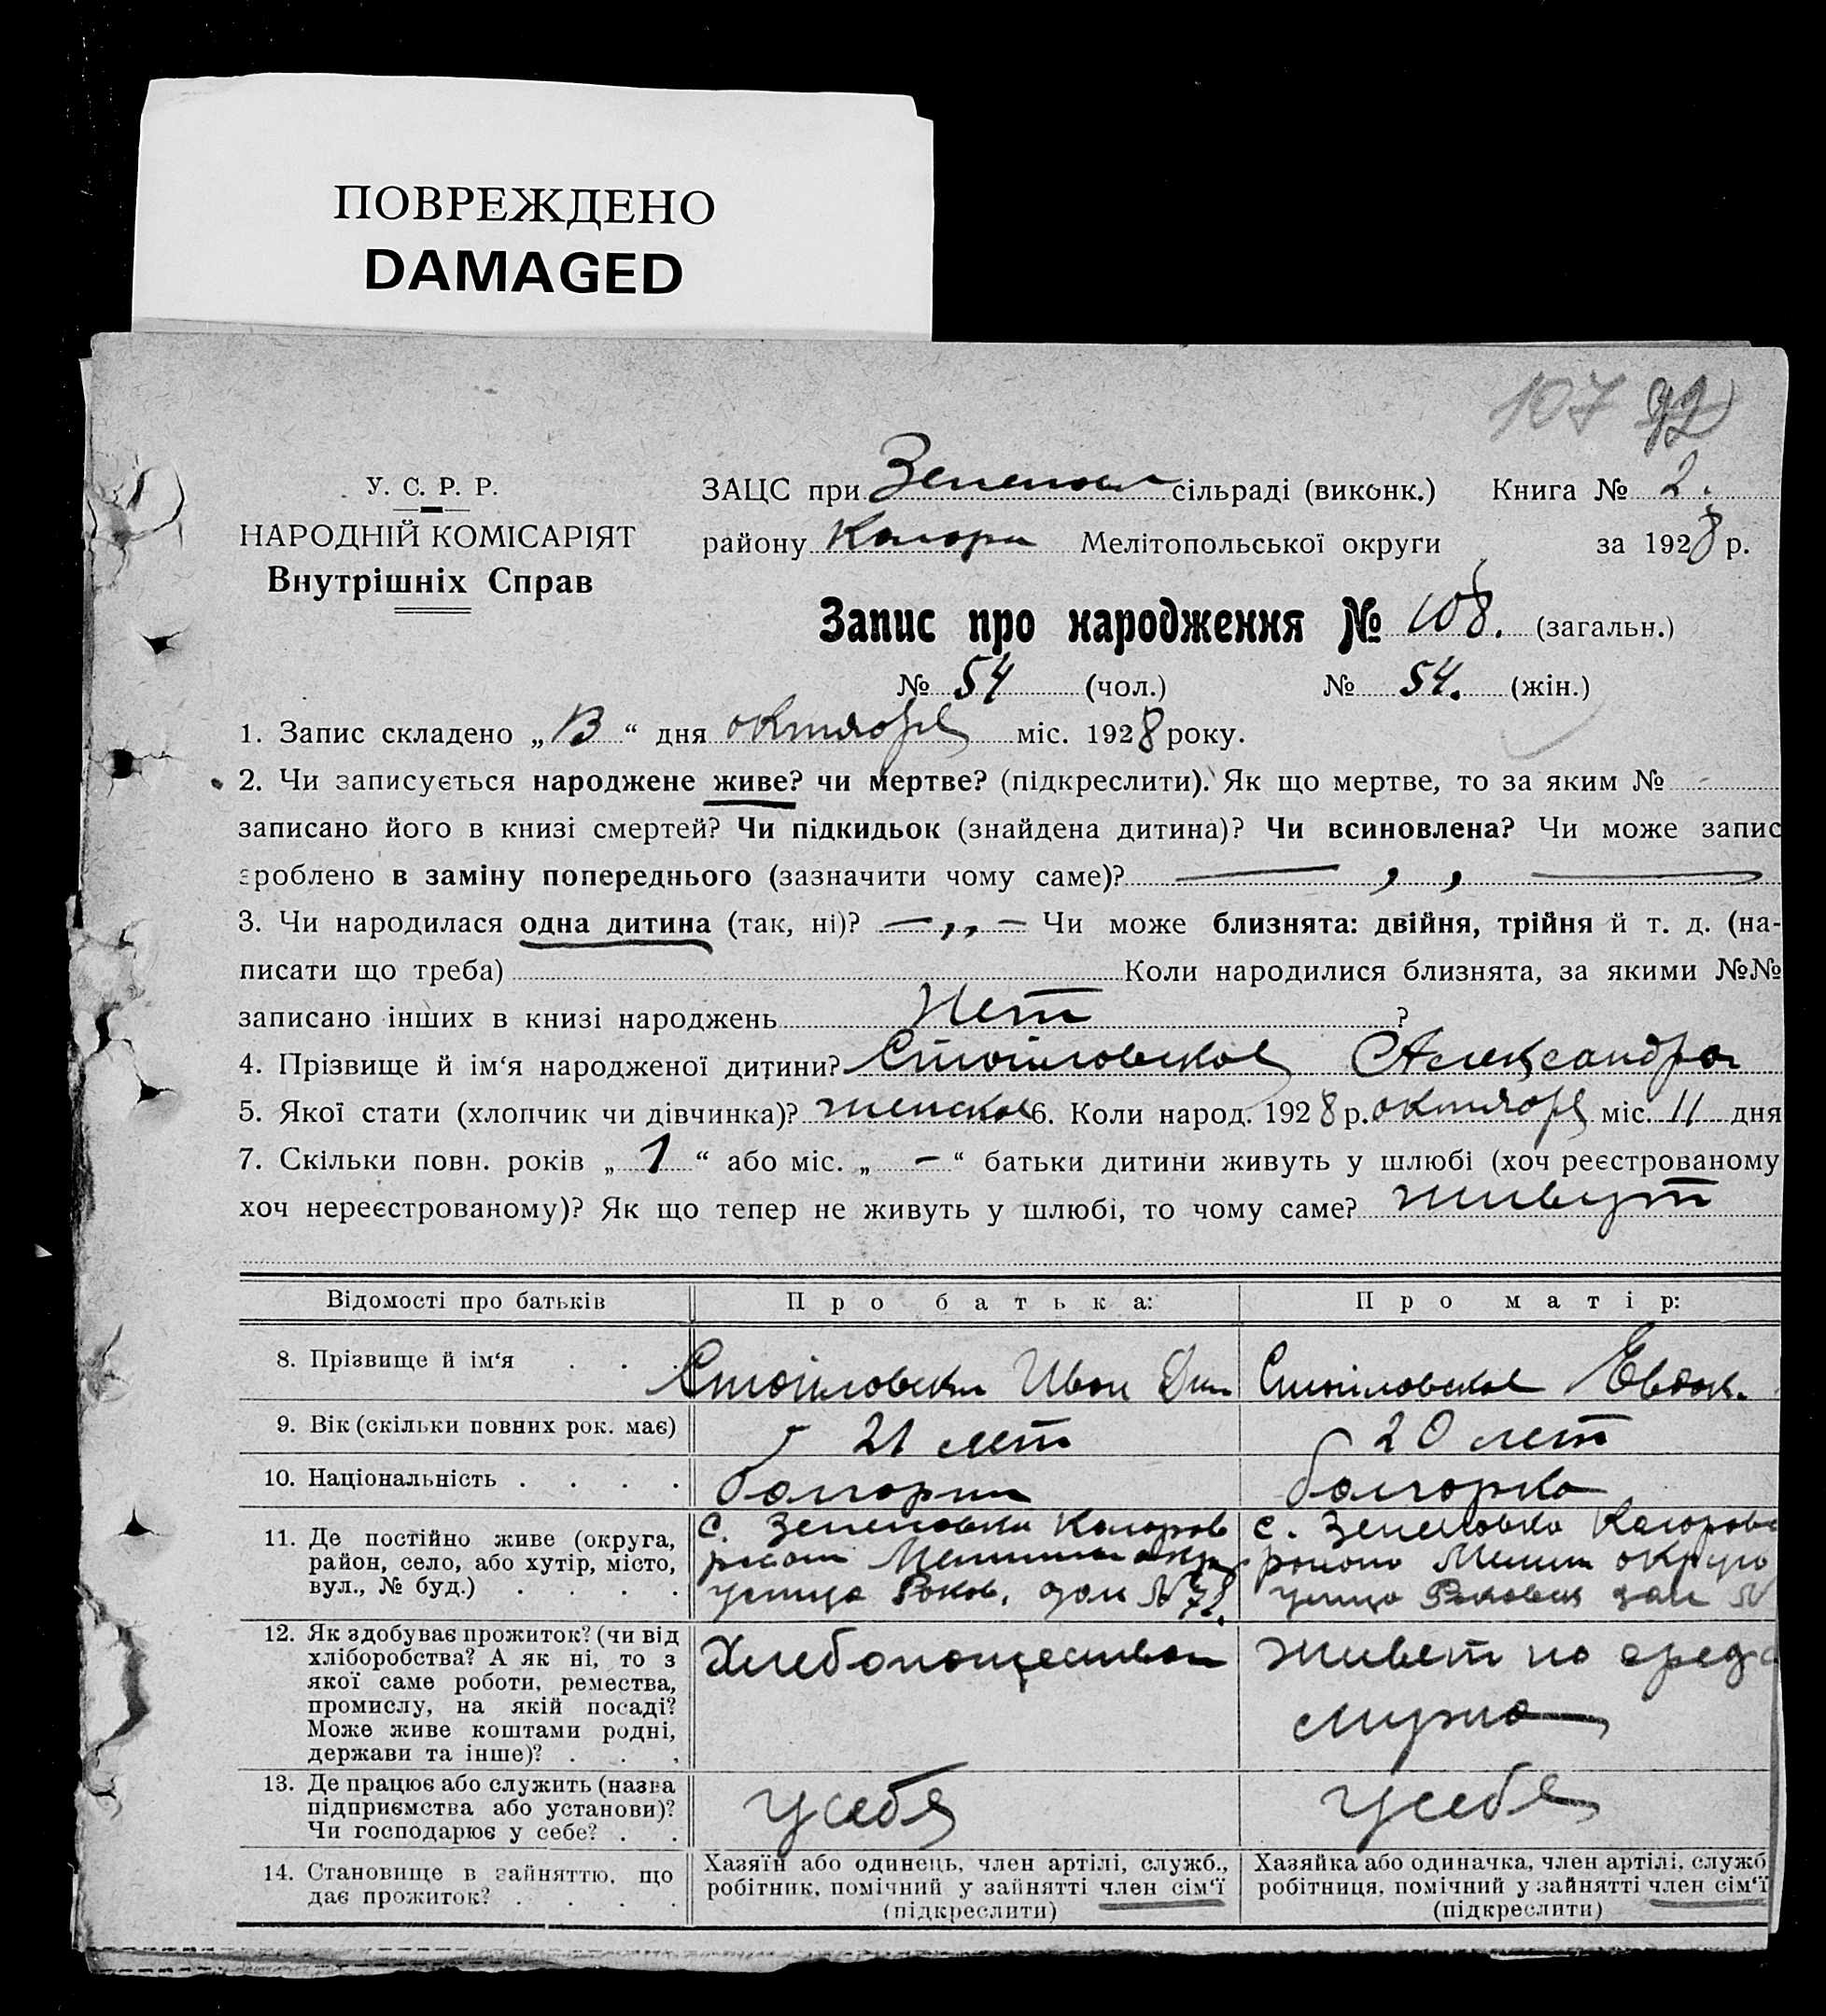 ПОВРЕЖДЕНО
DAMAGED
107 92
У. С. Р. Р.
НАРОДНІЙ КОМІСАРІЯТ
Внутрішніх Справ
ЗАЦС при сільраді (виконк.) Книга № 2.
району Колоров Мелітопольської округи за 1928 р.
Запис про народження № 108. (загальн.)
№ 54 (чол.) № 54. (жін.)
1. Запис складено „13“ дня октября міс. 1928 року.
2. Чи записується народжене живе? чи мертве? (підкреслити). Як що мертве, то за яким № -
записано його в книзі смертей? Чи підкидьок (знайдена дитина)? Чи всиновлена? Чи може запис
зроблено в заміну попереднього (зазначити чому саме)? — „ —
3. Чи народилася одна дитина (так, ні)? — „ — Чи може близнята: двійня, трійня й т. д. (на-
писати що треба) Коли народилися близнята, за якими №№
записано інших в книзі народжень Нет ?
4. Прізвище й ім‘я народженої дитини? Стойловская Александра
5. Якої стати (хлопчик чи дівчинка)? женская 6. Коли народ. 1928 р. октября міс. 11 дня
7. Скільки повн. років „1“ або міс. „-“ батьки дитини живуть у шлюбі (хоч реєстрованому
хоч нереєстрованому)? Як що тепер не живуть у шлюбі, то чому саме? живут
Відомості про батьків Про батька: Про матір:
8. Прізвище й ім‘я . . . Стойловски Иван Стойловская Евдок.
9. Вік (скільки повних рок. має) 21 лет 20 лет
10. Національність . . . . болгарин болгарка
11. Де постійно живе (округа,
район, село, або хутір, місто,
вул., № буд.) . . . .
с. Зеленовка Колоров
район Мелитоп окр
улица Раков. дом № 78.
с. Зеленовка Колоров
район Мелит округа
улица Раковск дом №
12. Як здобуває прожиток? (чи від
хліборобства? А як ні, то з
якої саме роботи, ремества,
промислу, на якій посаді?
Може живе коштами родні,
держави та інше)? . . .
Хлебопашеством
живет на сред
мужа
13. Де працює або служить (назва
підприємства або установи)?
Чи господарює у себе? . .
у себя
у себя
14. Становище в зайняттю, що
дає прожиток? . . . .
Хазяїн або одинець, член артілі, служб.,
робітник, помічний у зайнятті член сім‘ї
(підкреслити)
Хазяйка або одиначка, член артілі, служб
робітниця, помічний у зайнятті член сім‘ї
(підкреслити)